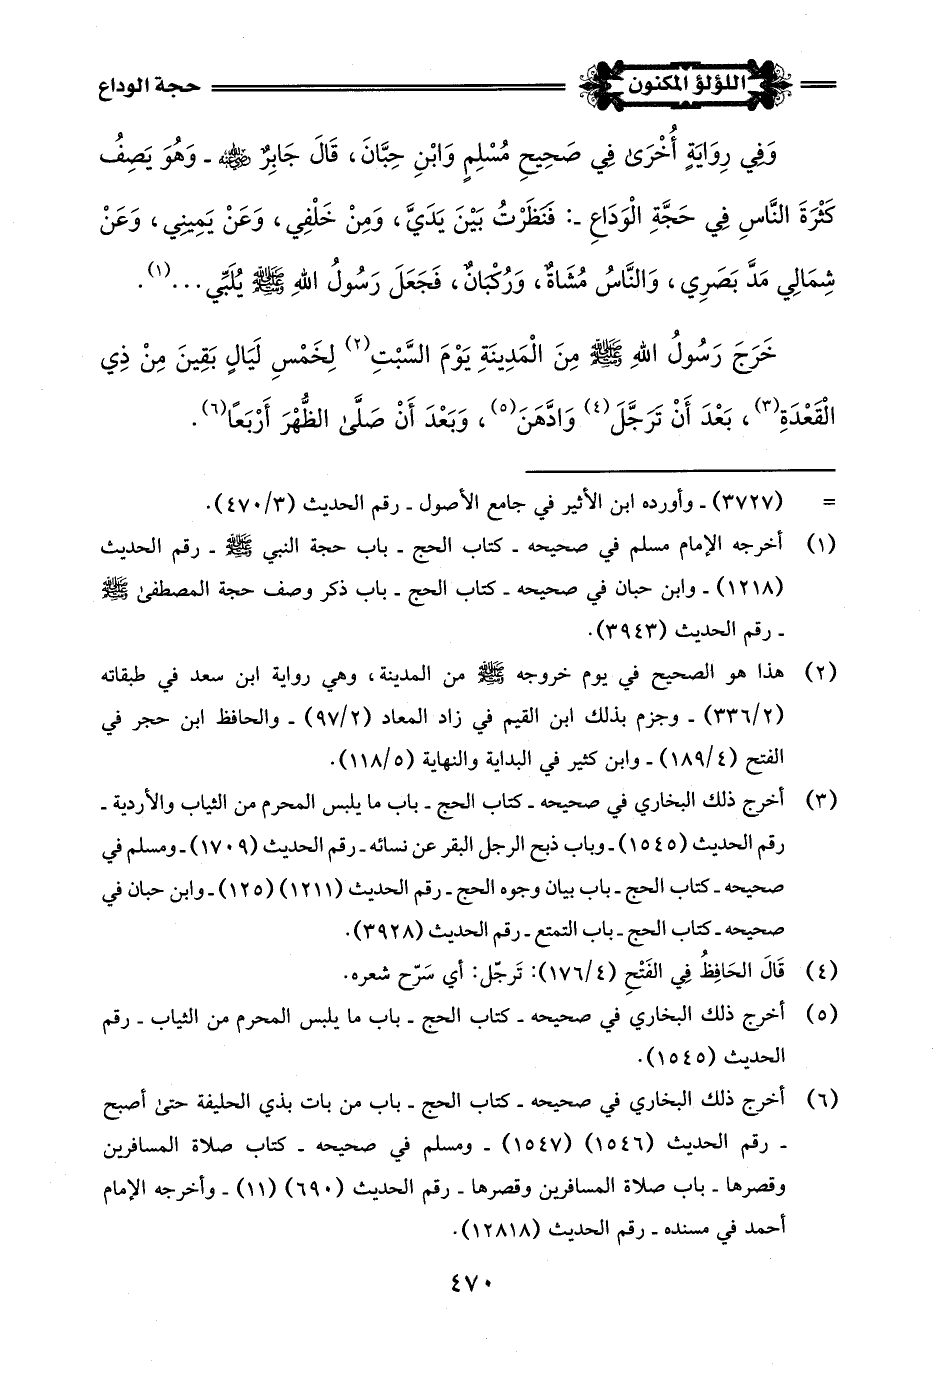 اللؤلؤ المكنون
حجة الوداع
وَفِي رِوَايَةٍ أُخْرَىٰ فِي صَحِيحِ مُسْلِمٍ وَابْنِ حِبَّانَ، قَالَ جَابِرٌ رضي الله عنه ـ وَهُوَ يَصِفُ
كَثْرَةَ النَّاسِ فِي حَجَّةِ الْوَدَاعِ ـ: فَنَظَرْتُ بَيْنَ يَدَيَّ، وَمِنْ خَلْفِي، وَعَنْ يَمِينِي، وَعَنْ
شِمَالِي مَدَّ بَصَرِي، وَالنَّاسُ مُشَاةٌ، وَرُكْبَانٌ، فَجَعَلَ رَسُولُ اللهِ ﷺ يُلَبِّي...(١).
خَرَجَ رَسُولُ اللهِ ﷺ مِنَ الْمَدِينَةِ يَوْمَ السَّبْتِ(٢) لِخَمْسِ لَيَالٍ بَقِينَ مِنْ ذِي
الْقَعْدَةِ(٣)، بَعْدَ أَنْ تَرَجَّلَ(٤) وَادَّهَنَ(٥)، وَبَعْدَ أَنْ صَلَّىٰ الظُّهْرَ أَرْبَعًا(٦).
= (٣٧٢٧) ـ وأورده ابن الأثير في جامع الأصول ـ رقم الحديث (٤٧٠/٣).
(١) أخرجه الإمام مسلم في صحيحه ـ كتاب الحج ـ باب حجة النبي ﷺ ـ رقم الحديث
(١٢١٨) ـ وابن حبان في صحيحه ـ كتاب الحج ـ باب ذكر وصف حجة المصطفىٰ ﷺ
ـ رقم الحديث (٣٩٤٣).
(٢) هذا هو الصحيح في يوم خروجه ﷺ من المدينة، وهي رواية ابن سعد في طبقاته
(٣٣٦/٢) ـ وجزم بذلك ابن القيم في زاد المعاد (٩٧/٢) ـ والحافظ ابن حجر في
الفتح (١٨٩/٤) ـ وابن كثير في البداية والنهاية (١١٨/٥).
(٣) أخرج ذلك البخاري في صحيحه ـ كتاب الحج ـ باب ما يلبس المحرم من الثياب والأردية ـ
رقم الحديث (١٥٤٥) ـ وباب ذبح الرجل البقر عن نسائه ـ رقم الحديث (١٧٠٩) ـ ومسلم في
صحيحه ـ كتاب الحج ـ باب بيان وجوه الحج ـ رقم الحديث (١٢١١) (١٢٥) ـ وابن حبان في
صحيحه ـ كتاب الحج ـ باب التمتع ـ رقم الحديث (٣٩٢٨).
(٤) قَالَ الحَافِظُ فِي الفَتْحِ (١٧٦/٤): تَرجّل: أي سَرّح شعره.
(٥) أخرج ذلك البخاري في صحيحه ـ كتاب الحج ـ باب ما يلبس المحرم من الثياب ـ رقم
الحديث (١٥٤٥).
(٦) أخرج ذلك البخاري في صحيحه ـ كتاب الحج ـ باب من بات بذي الحليفة حتىٰ أصبح
ـ رقم الحديث (١٥٤٦) (١٥٤٧) ـ ومسلم في صحيحه ـ كتاب صلاة المسافرين
وقصرها ـ باب صلاة المسافرين وقصرها ـ رقم الحديث (٦٩٠) (١١) ـ وأخرجه الإمام
أحمد في مسنده ـ رقم الحديث (١٢٨١٨).
٤٧٠